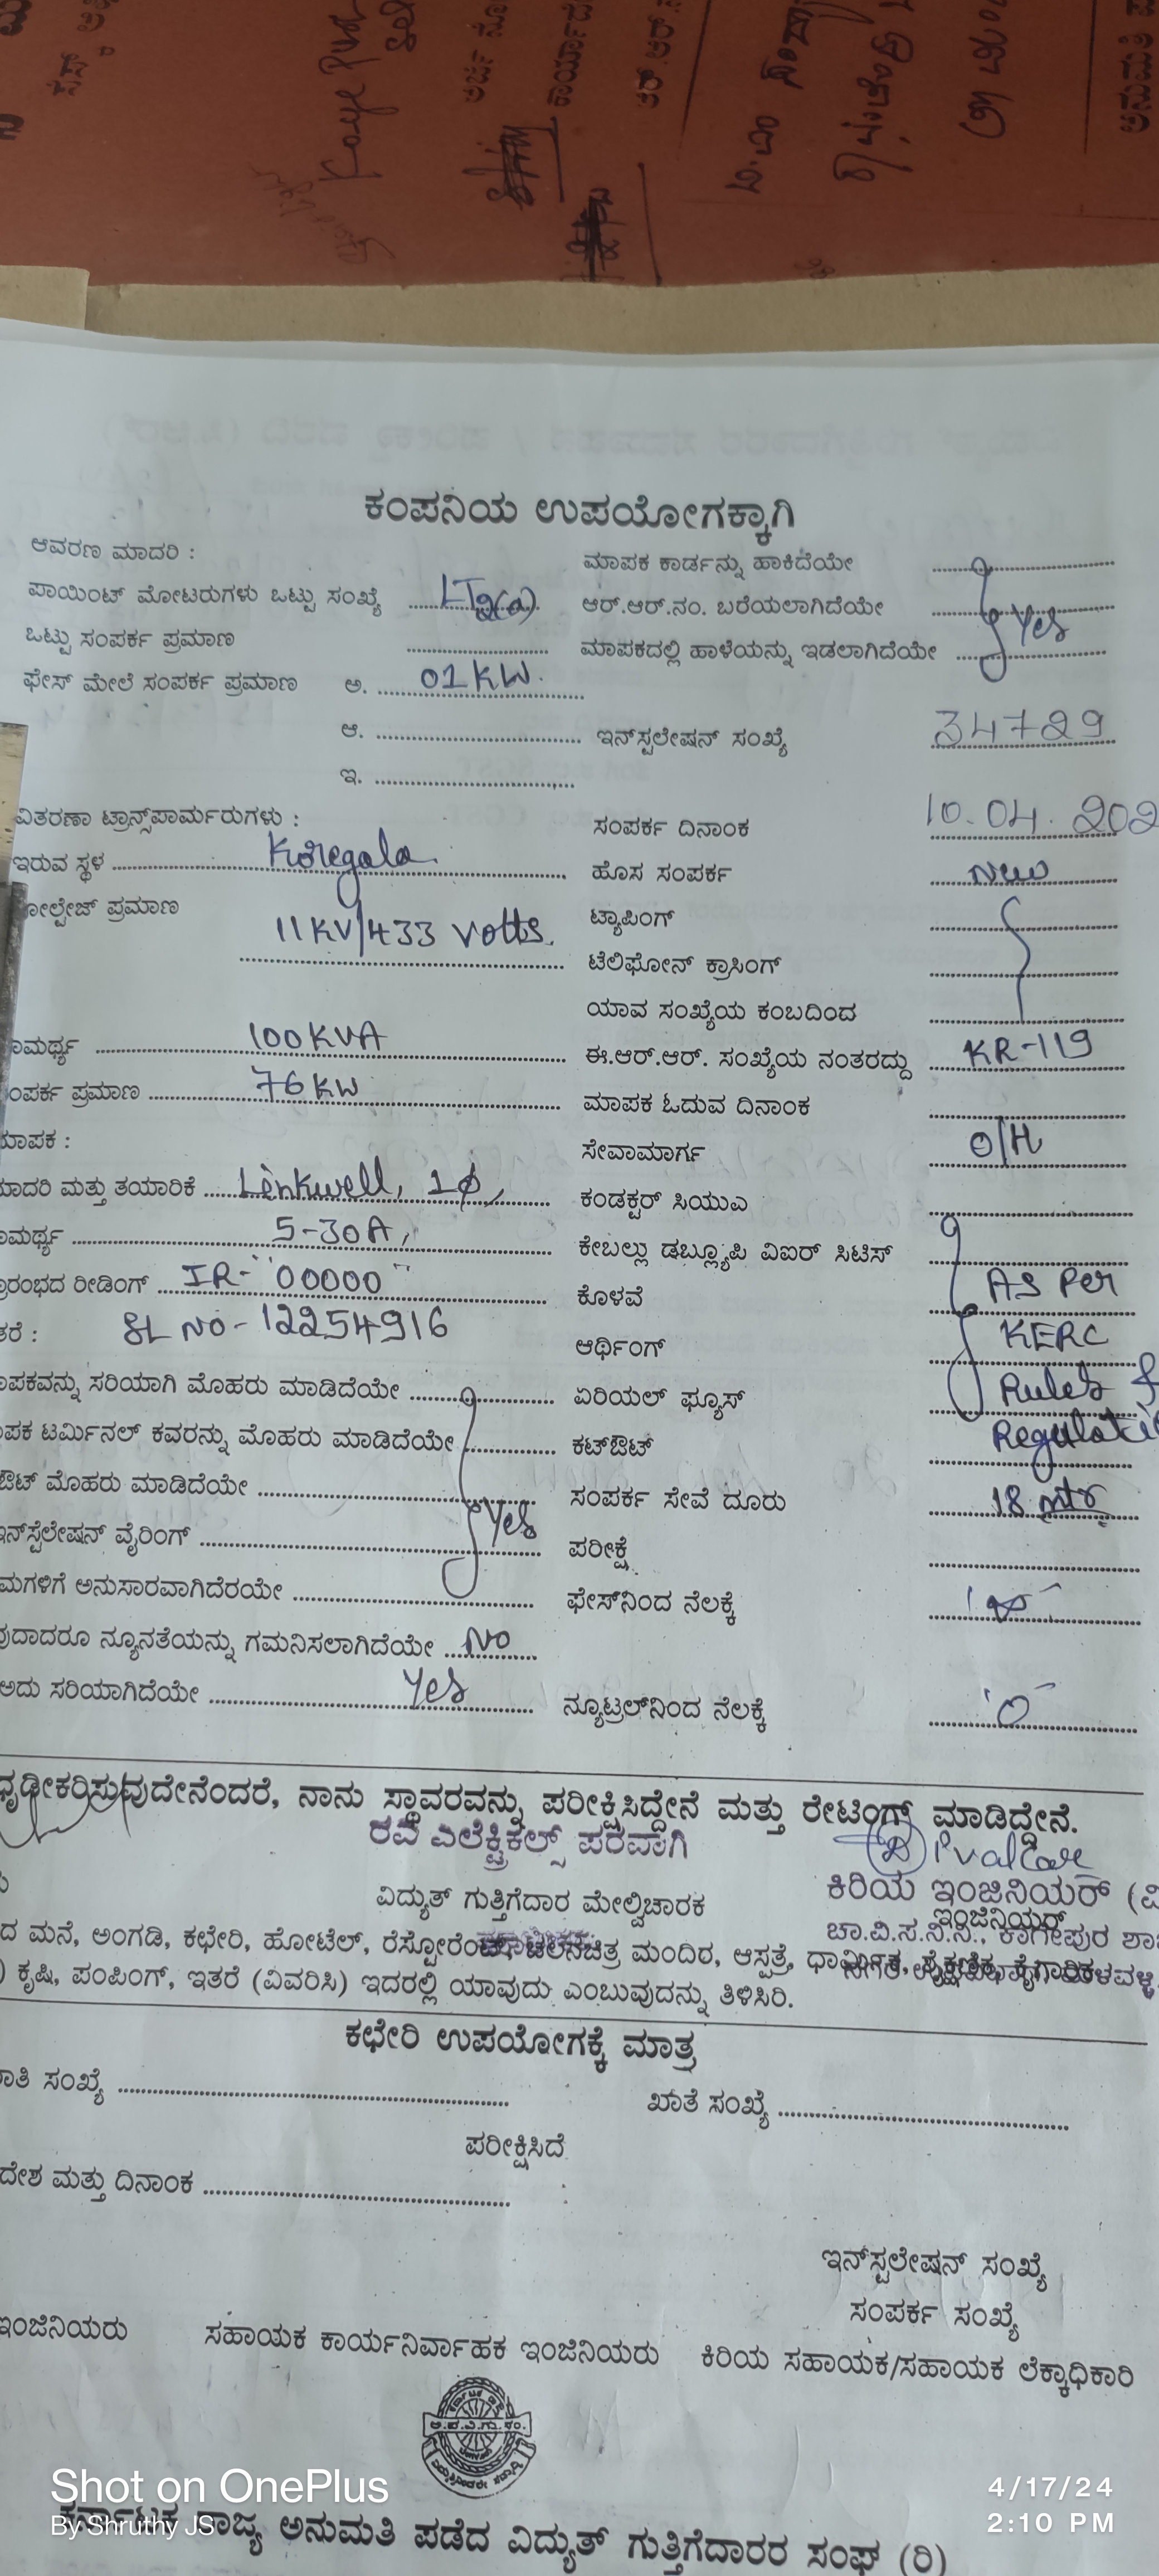 ಕಂಪನಿಯ ಉಪಯೋಗಕ್ಕಾಗಿ
ಆವರಣ ಮಾದರಿ :
ಪಾಯಿಂಟ್ ಮೋಟರುಗಳು ಒಟ್ಟು ಸಂಖ್ಯೆ LT2(a)
ಒಟ್ಟು ಸಂಪರ್ಕ ಪ್ರಮಾಣ
ಫೇಸ್ ಮೇಲೆ ಸಂಪರ್ಕ ಪ್ರಮಾಣ ಅ. 01KW.
ಆ.
ಇ.
ವಿತರಣಾ ಟ್ರಾನ್ಸ್‌ಪಾರ್ಮರುಗಳು :
ಇರುವ ಸ್ಥಳ Koregala
ೋಲ್ಟೇಜ್ ಪ್ರಮಾಣ 11KV/433 Volts.
ಾಮರ್ಥ್ಯ 100KVA
ಂಪರ್ಕ ಪ್ರಮಾಣ 76KW
ಮಾಪಕ :
ಮಾದರಿ ಮತ್ತು ತಯಾರಿಕೆ Linkwell, 1ϕ,
ಾಮರ್ಥ್ಯ 5-30A,
ಪ್ರಾರಂಭದ ರೀಡಿಂಗ್ IR- "00000"
ತರೆ : SL NO - 12254916
ಾಪಕವನ್ನು ಸರಿಯಾಗಿ ಮೊಹರು ಮಾಡಿದೆಯೇ
ಾಪಕ ಟರ್ಮಿನಲ್ ಕವರನ್ನು ಮೊಹರು ಮಾಡಿದೆಯೇ
ಔಟ್ ಮೊಹರು ಮಾಡಿದೆಯೇ
ಇನ್‌ಸ್ಟೆಲೇಷನ್ ವೈರಿಂಗ್ Yes
ಮಗಳಿಗೆ ಅನುಸಾರವಾಗಿದೆರಯೇ
ವುದಾದರೂ ನ್ಯೂನತೆಯನ್ನು ಗಮನಿಸಲಾಗಿದೆಯೇ No
ಅದು ಸರಿಯಾಗಿದೆಯೇ Yes
ಮಾಪಕ ಕಾರ್ಡನ್ನು ಹಾಕಿದೆಯೇ
ಆರ್.ಆರ್.ನಂ. ಬರೆಯಲಾಗಿದೆಯೇ Yes
ಮಾಪಕದಲ್ಲಿ ಹಾಳೆಯನ್ನು ಇಡಲಾಗಿದೆಯೇ
ಇನ್‌ಸ್ಟಲೇಷನ್ ಸಂಖ್ಯೆ 34729
ಸಂಪರ್ಕ ದಿನಾಂಕ 10.04.202
ಹೊಸ ಸಂಪರ್ಕ New
ಟ್ಯಾಪಿಂಗ್
ಟೆಲಿಫೋನ್ ಕ್ರಾಸಿಂಗ್
ಯಾವ ಸಂಖ್ಯೆಯ ಕಂಬದಿಂದ
ಈ.ಆರ್.ಆರ್. ಸಂಖ್ಯೆಯ ನಂತರದ್ದು KR-119
ಮಾಪಕ ಓದುವ ದಿನಾಂಕ
ಸೇವಾಮಾರ್ಗ O/H
ಕಂಡಕ್ಟರ್ ಸಿಯುಎ
ಕೇಬಲ್ಲು ಡಬ್ಲ್ಯೂಪಿ ವಿಐರ್ ಸಿಟಿಸ್
ಕೊಳವೆ As Per
ಆರ್ಥಿಂಗ್ KERC
ಏರಿಯಲ್ ಫ್ಯೂಸ್ Rules &
ಕಟ್‌ಔಟ್ Regulati
ಸಂಪರ್ಕ ಸೇವೆ ದೂರು 18 mtr
ಪರೀಕ್ಷೆ
ಫೇಸ್‌ನಿಂದ ನೆಲಕ್ಕೆ
ನ್ಯೂಟ್ರಲ್‌ನಿಂದ ನೆಲಕ್ಕೆ 'O'
ಧೃಢೀಕರಿಸುವುದೇನೆಂದರೆ, ನಾನು ಸ್ಥಾವರವನ್ನು ಪರೀಕ್ಷಿಸಿದ್ದೇನೆ ಮತ್ತು ರೇಟಿಂಗ್ ಮಾಡಿದ್ದೇನೆ.
ರವಿ ಎಲೆಕ್ಟ್ರಿಕಲ್ಸ್ ಪರವಾಗಿ
ವಿದ್ಯುತ್ ಗುತ್ತಿಗೆದಾರ ಮೇಲ್ವಿಚಾರಕ
ಕಿರಿಯ ಇಂಜಿನಿಯರ್ (ವಿ
ಇಂಜಿನಿಯರ್
ಚಾ.ವಿ.ಸ.ನಿ.ನಿ., ಕಾಗೇಪುರ ಶಾ
ದ ಮನೆ, ಅಂಗಡಿ, ಕಛೇರಿ, ಹೋಟೆಲ್, ರೆಸ್ಟೋರೆಂಟ್, ಚಲನಚಿತ್ರ ಮಂದಿರ, ಆಸ್ಪತ್ರೆ, ಧಾರ್ಮಿಕ, ಶೈಕ್ಷಣಿಕ, ಕೈಗಾರಿಕ
) ಕೃಷಿ, ಪಂಪಿಂಗ್, ಇತರೆ (ವಿವರಿಸಿ) ಇದರಲ್ಲಿ ಯಾವುದು ಎಂಬುವುದನ್ನು ತಿಳಿಸಿರಿ.
ಕಛೇರಿ ಉಪಯೋಗಕ್ಕೆ ಮಾತ್ರ
ಾತಿ ಸಂಖ್ಯೆ ಖಾತೆ ಸಂಖ್ಯೆ
ಪರೀಕ್ಷಿಸಿದೆ
ದೇಶ ಮತ್ತು ದಿನಾಂಕ :
ಇನ್‌ಸ್ಟಲೇಷನ್ ಸಂಖ್ಯೆ
ಸಂಪರ್ಕ ಸಂಖ್ಯೆ
ಇಂಜಿನಿಯರು ಸಹಾಯಕ ಕಾರ್ಯನಿರ್ವಾಹಕ ಇಂಜಿನಿಯರು ಕಿರಿಯ ಸಹಾಯಕ/ಸಹಾಯಕ ಲೆಕ್ಕಾಧಿಕಾರಿ
ಕರ್ನಾಟಕ ರಾಜ್ಯ ಅನುಮತಿ ಪಡೆದ ವಿದ್ಯುತ್ ಗುತ್ತಿಗೆದಾರರ ಸಂಘ (ರಿ)
Shot on OnePlus
By Shruthy JS
4/17/24
2:10 PM